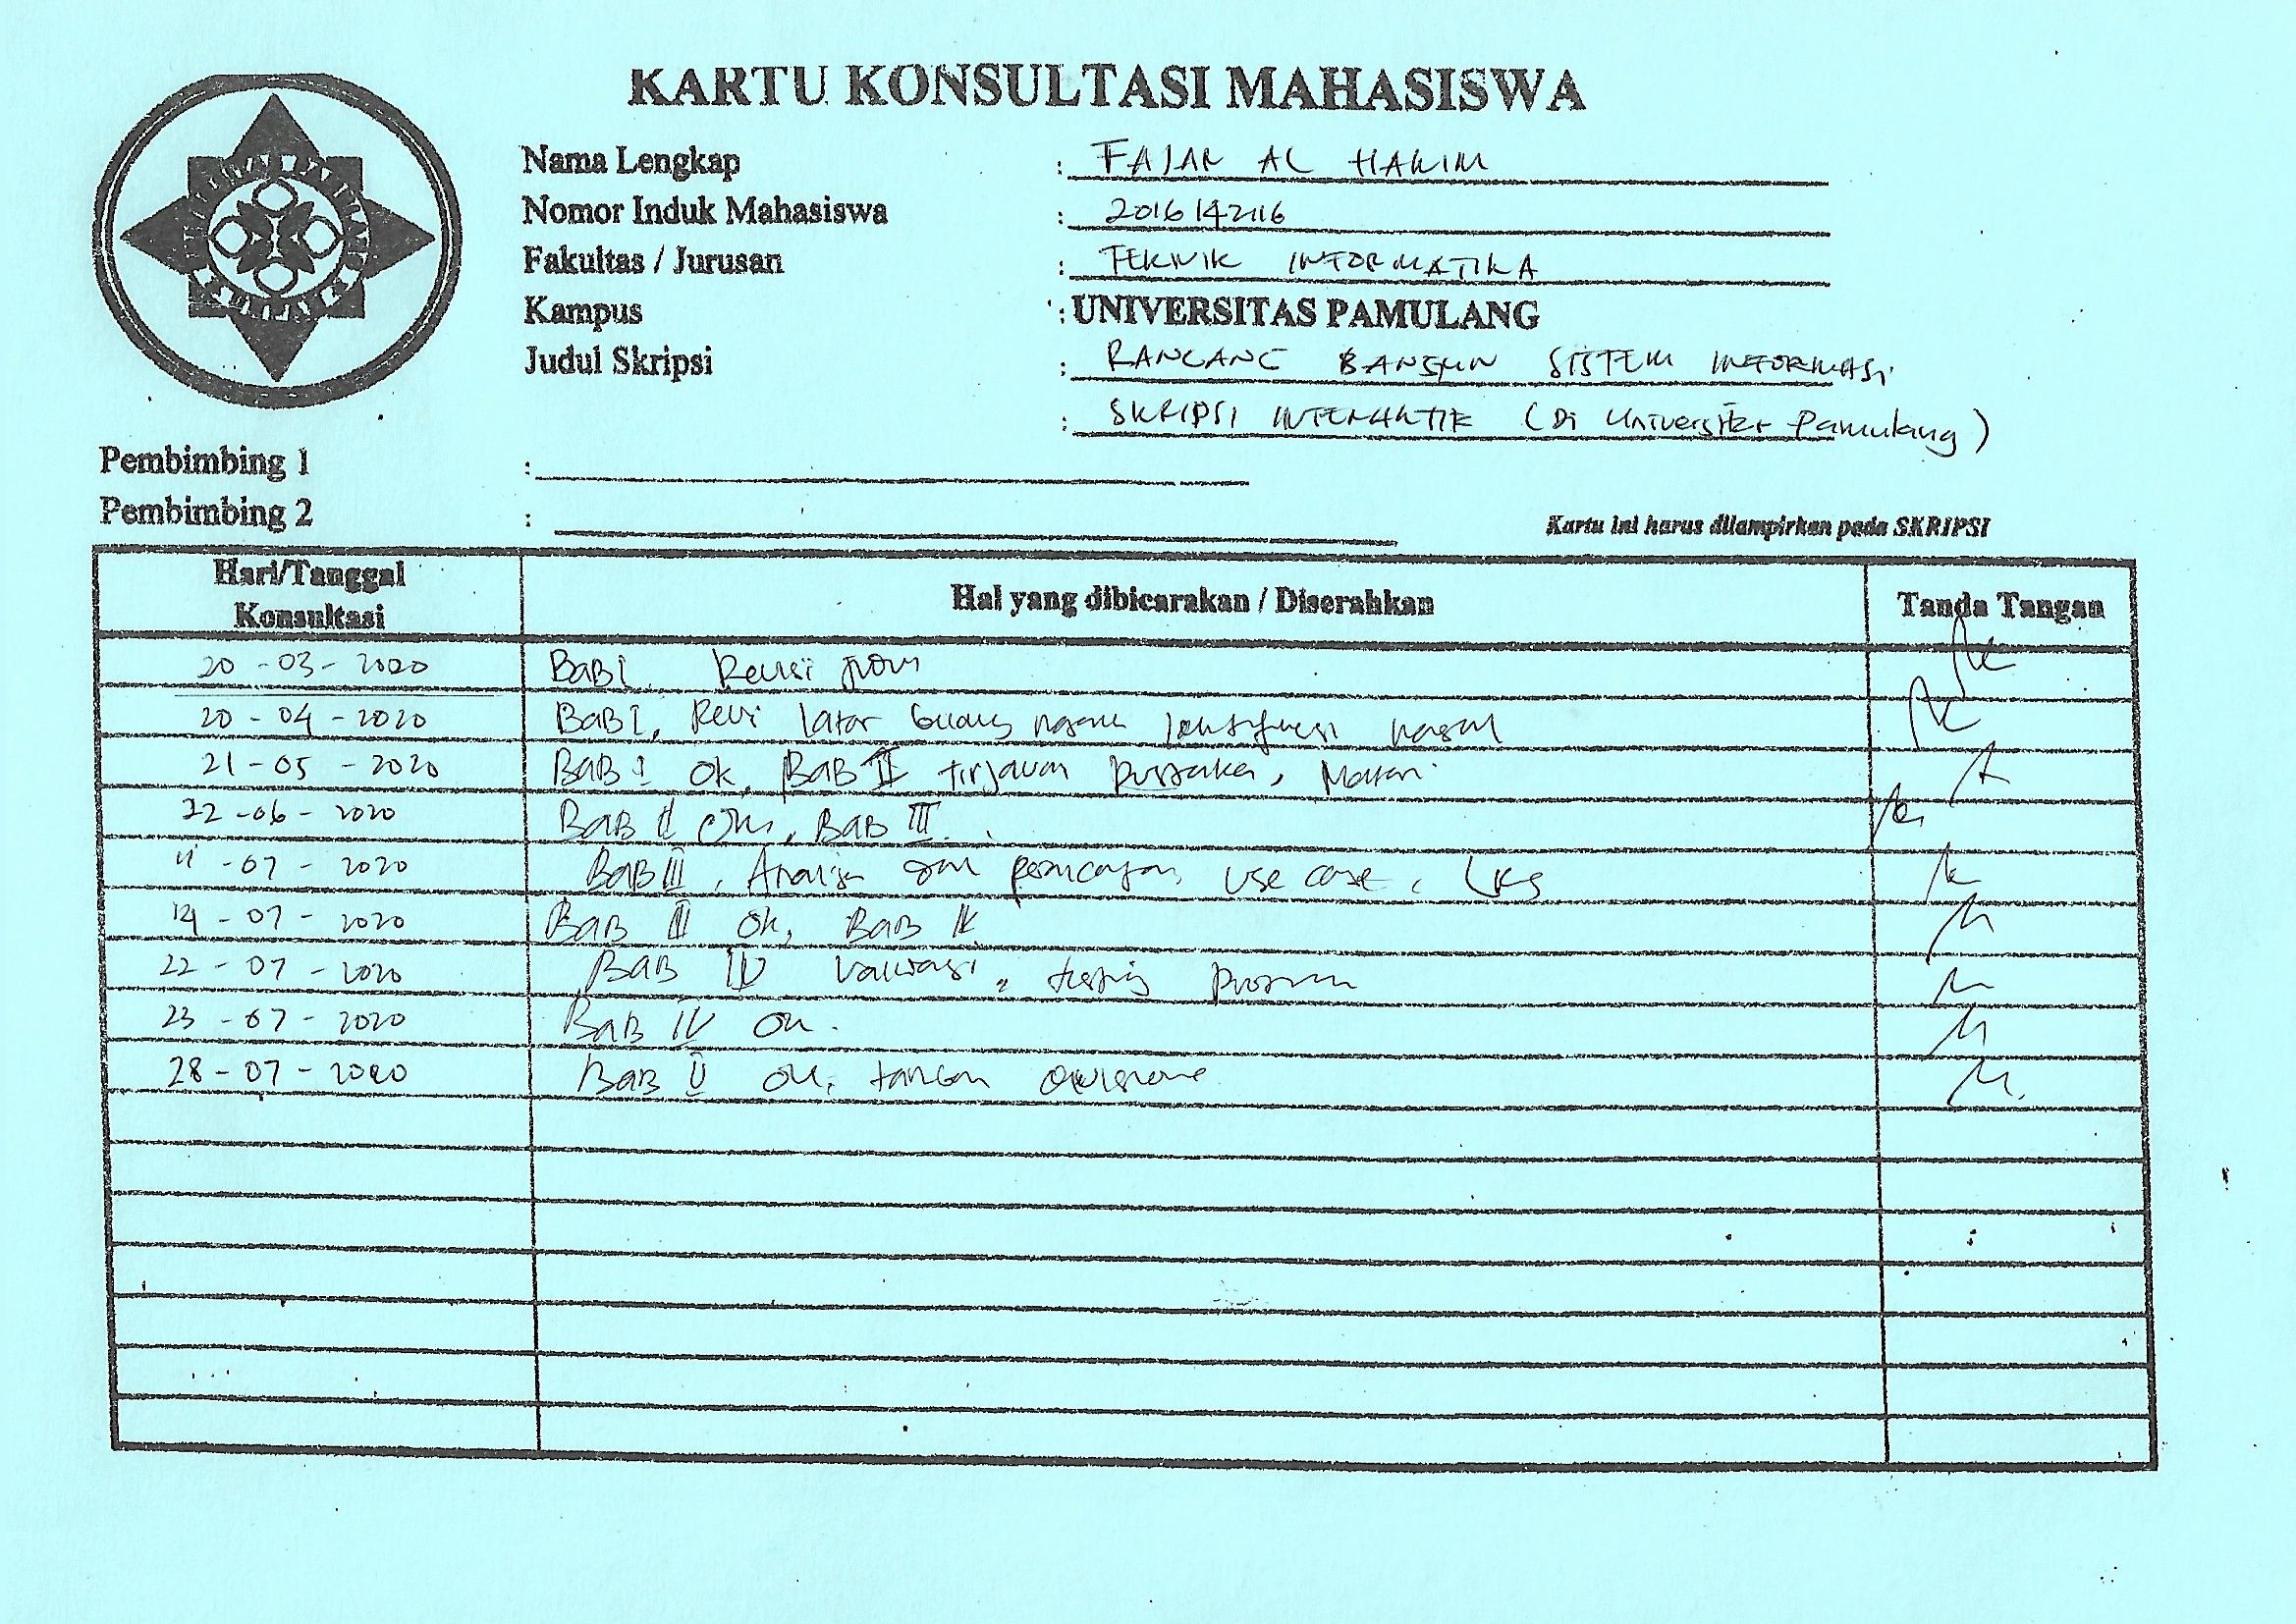 KARTU KONSULTASI MAHASISWA
Nama Lengkap : FAJAR AL HAKIM
Nomor Induk Mahasiswa : 2016142116
Fakultas / Jurusan : TEKNIK INFORMATIKA
Kampus : UNIVERSITAS PAMULANG
Judul Skripsi : RANCANG BANGUN SISTEM INFORMASI
: SKRIPSI INTERAKTIF (Di Universitas Pamulang)
Pembimbing 1 :
Pembimbing 2 :
Kartu ini harus dilampirkan pada SKRIPSI
Hari/Tanggal Konsultasi Hal yang dibicarakan / Diserahkan Tanda Tangan
20-03-2020 BAB I. Revisi
20-04-2020 BAB I, Revi latar
21-05-2020 BAB I Ok, BAB II tinjauan pustaka, Materi
22-06-2020 BAB II Ok, BAB III.
11-07-2020 BAB III, Analisa dan perancangan, use case,
14-07-2020 BAB III Ok, BAB IV
22-07-2020 BAB IV testing program
23-07-2020 BAB IV Ok.
28-07-2020 BAB V Ok,